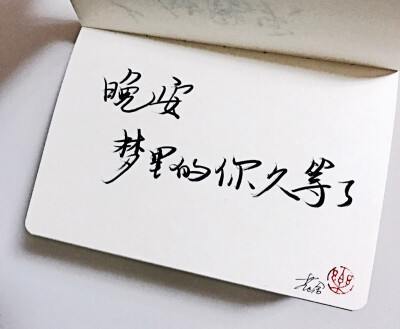 晚安
梦里的你久等了